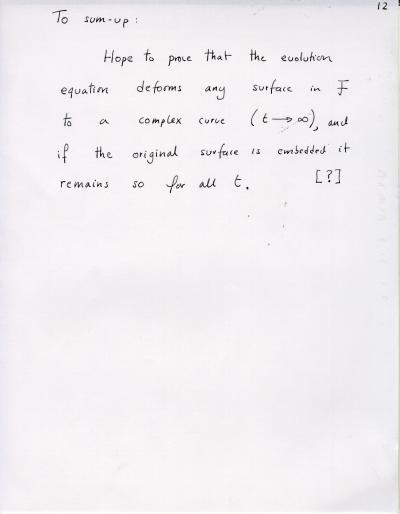 12
To sum-up :
Hope to prove that the evolution
equation deforms any surface in F
to a complex curve (t → ∞), and
if the original surface is embedded it
remains so for all t. [?]